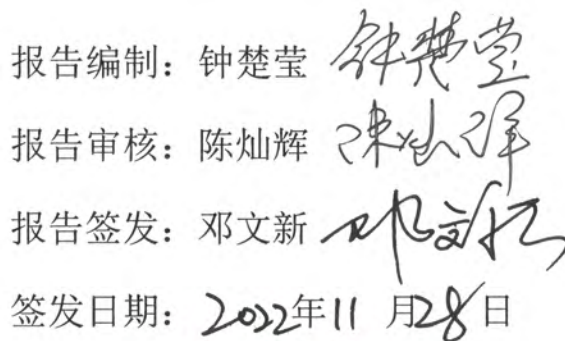 报告编制：钟楚莹 钟楚莹
报告审核：陈灿辉 陈灿辉
报告签发：邓文新 邓文新
签发日期：2022年11月28日